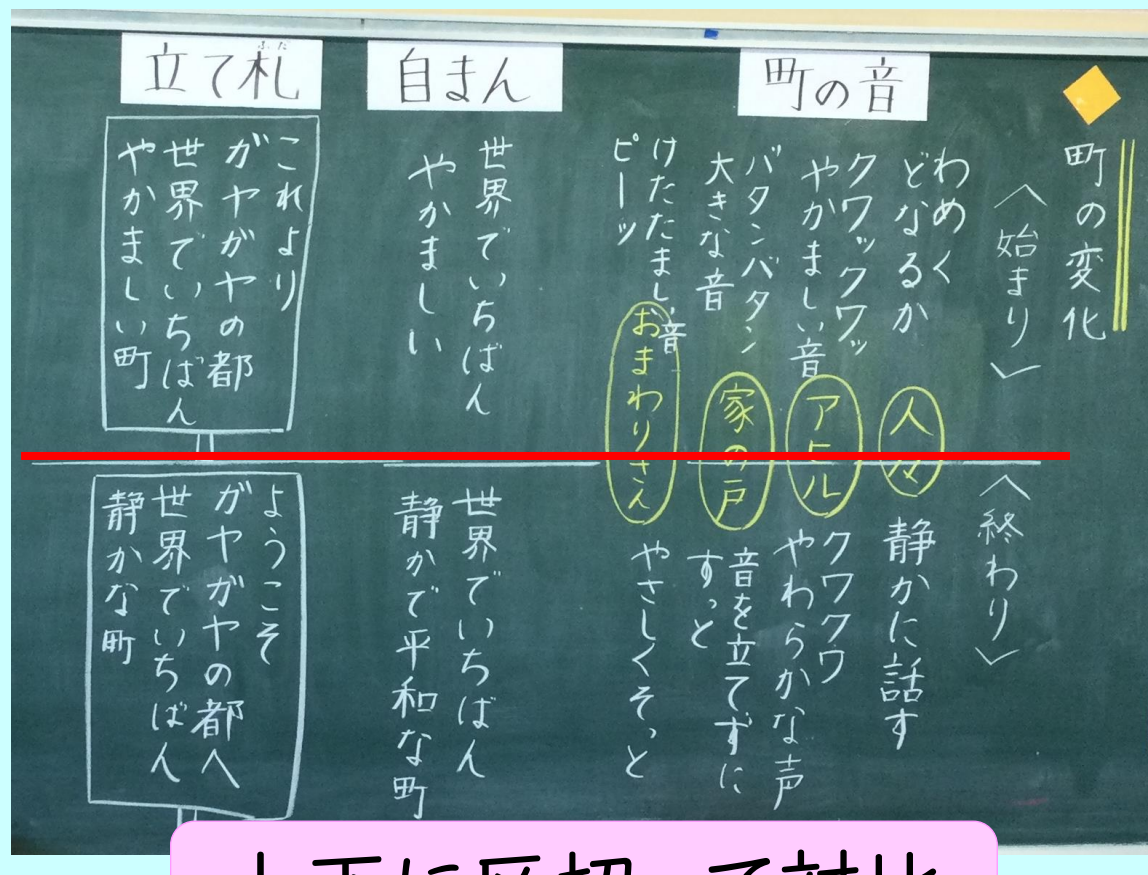 町の変化
〈始まり〉
町の音
わめく
どなるか
人々
クワックワッ
やかましい音
アヒル
バタンバタン
大きな音
家の戸
けたたましい音
ピーッ
おまわりさん
自まん
世界でいちばん
やかましい
立て札
ふだ
これより
ガヤガヤの都
世界でいちばん
やかましい町
〈終わり〉
静かに話す
クワクワ
やわらかな声
音を立てずに
すっと
やさしくそっと
世界でいちばん
静かで平和な町
ようこそ
ガヤガヤの都へ
世界でいちばん
静かな町
上下に区切って対比